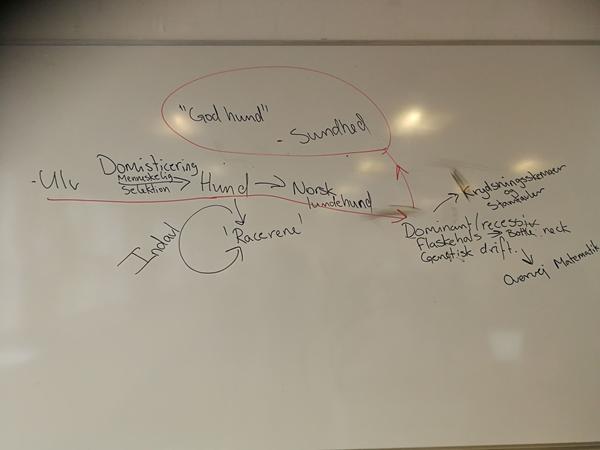 "God hund"
- Sundhed
- Ulv
Domisticering
Menneskelig
Selektion
Hund
Norsk
lundehund
Indavl
'Racerene'
Krydsningsskemaer
og
Stamtavler
Dominant/recessiv
Flaskehals → Bottle neck
Genetisk drift.
Overvej Matematik